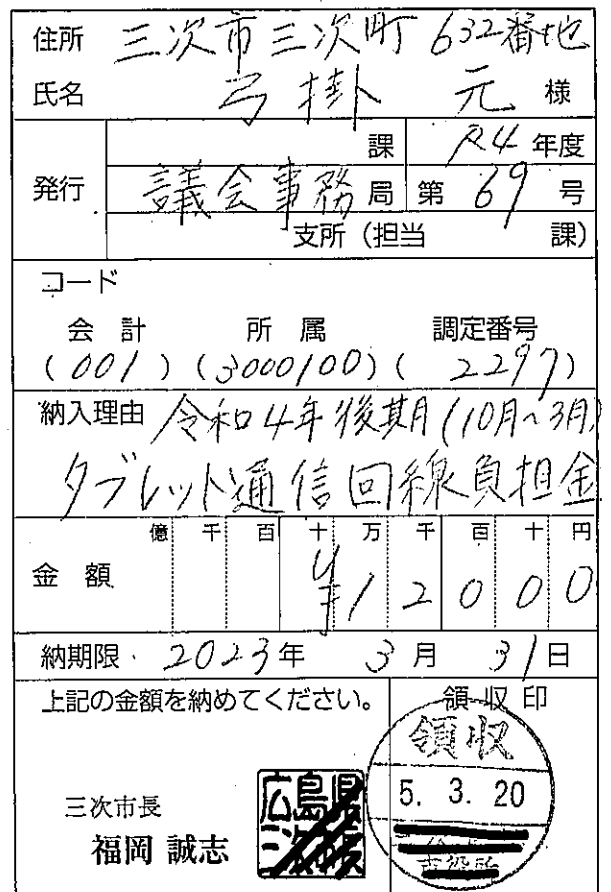 住所 三次市三次町632番地
氏名 弓掛 元 様
課 R4年度
発行 議会事務局 第69号
支所(担当 課)
コード
会計 所属 調定番号
(001)(3000100)(2297)
納入理由 令和4年後期(10月~3月)
タブレット通信回線負担金
億 千 百 十 万 千 百 十 円
金額 ¥12000
納期限 2023年 3月 31日
上記の金額を納めてください。 領収印
領収
5. 3. 20
市役所
三次市長
福岡 誠志
広島県